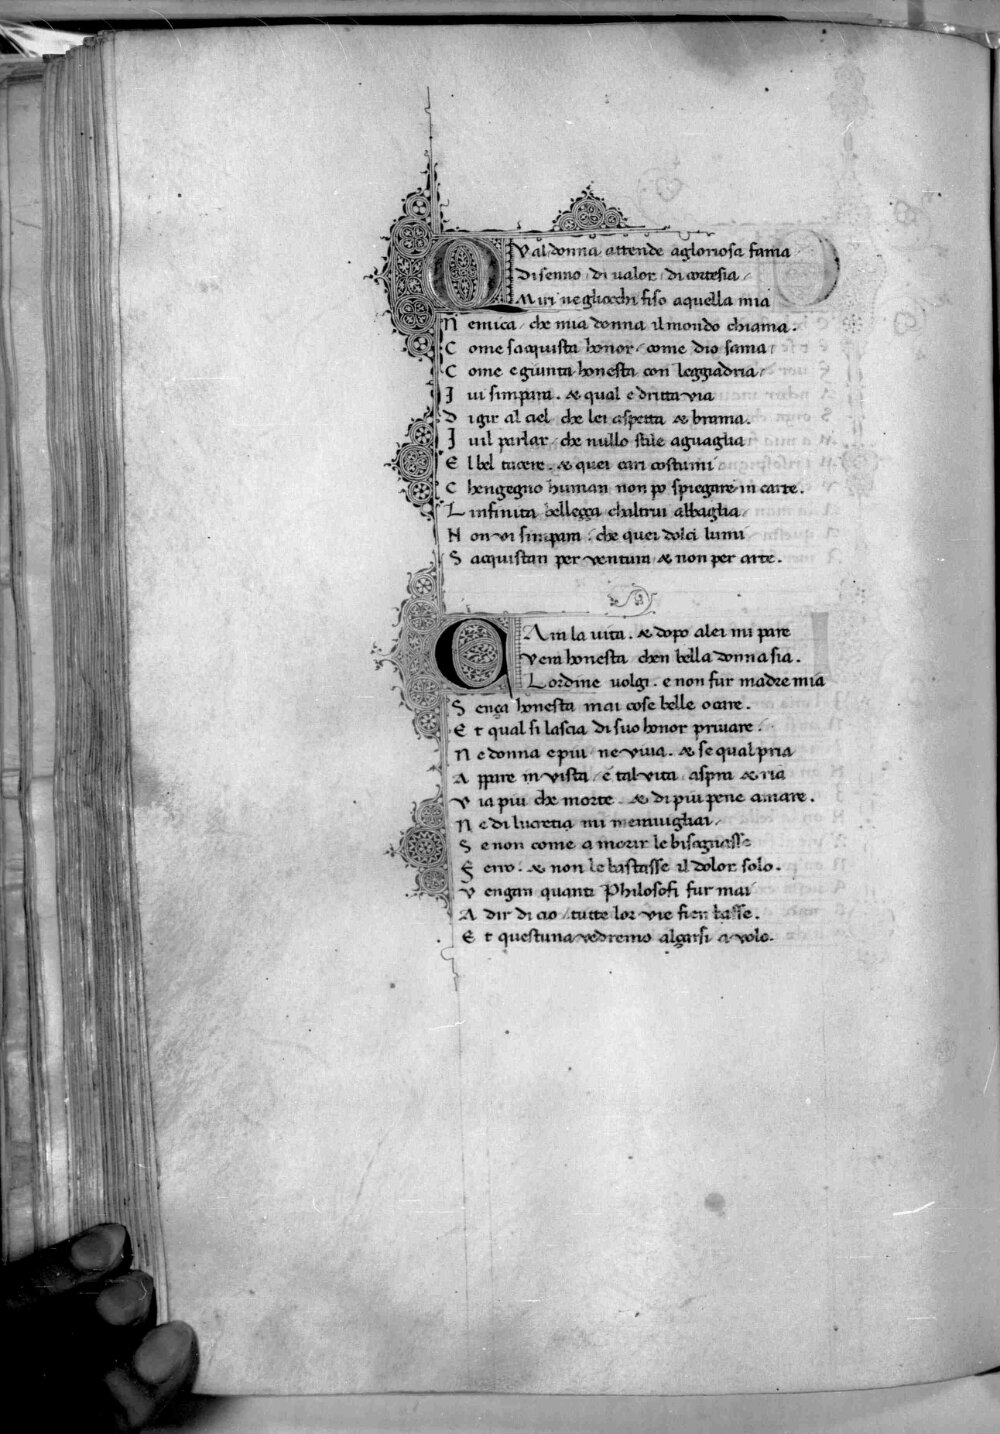 Qual donna attende agloriosa fama
Di senno / di ualor / di cortesia /
Miri ne gliocchi fiso aquella mia
Nemica / che mia donna il mondo chiama .
Come sacquista honor / come dio sama
Come e giunta honesta con leggiadria /
Iui simpara . & qual e dritta via
Digir al ciel che lei aspetta & brama .
Iuil parlar / che nullo stile aguaglia
El bel tacere . & quei cari costumi
Chengegno human non po spiegare in carte .
Linfinita bellegga chaltrui abbaglia
Non vi simpara : che quei dolci lumi
Sacquistan per ventura & non per arte .
Cara la uita . & dopo alei mi pare
Vera honesta chen bella donna sia .
Lordine uolgi . e non fur madre mia
Sença honesta mai cose belle o care .
Et qual si lascia di suo honor priuare .
Ne donna e piu ne viua . & se qual pria
Appare in vista / e tal vita aspra & ria
Via piu che morte . & di piu pene amare .
Ne di lucretia mi merauigliai /
Se non come a morir le bisognasse
Ferro . & non le bastasse il dolor solo .
Vengan quanti Philosofi fur mai
A dir di cio / tutte lor vie fien basse .
Et questuna vedremo alçarsi a volo .